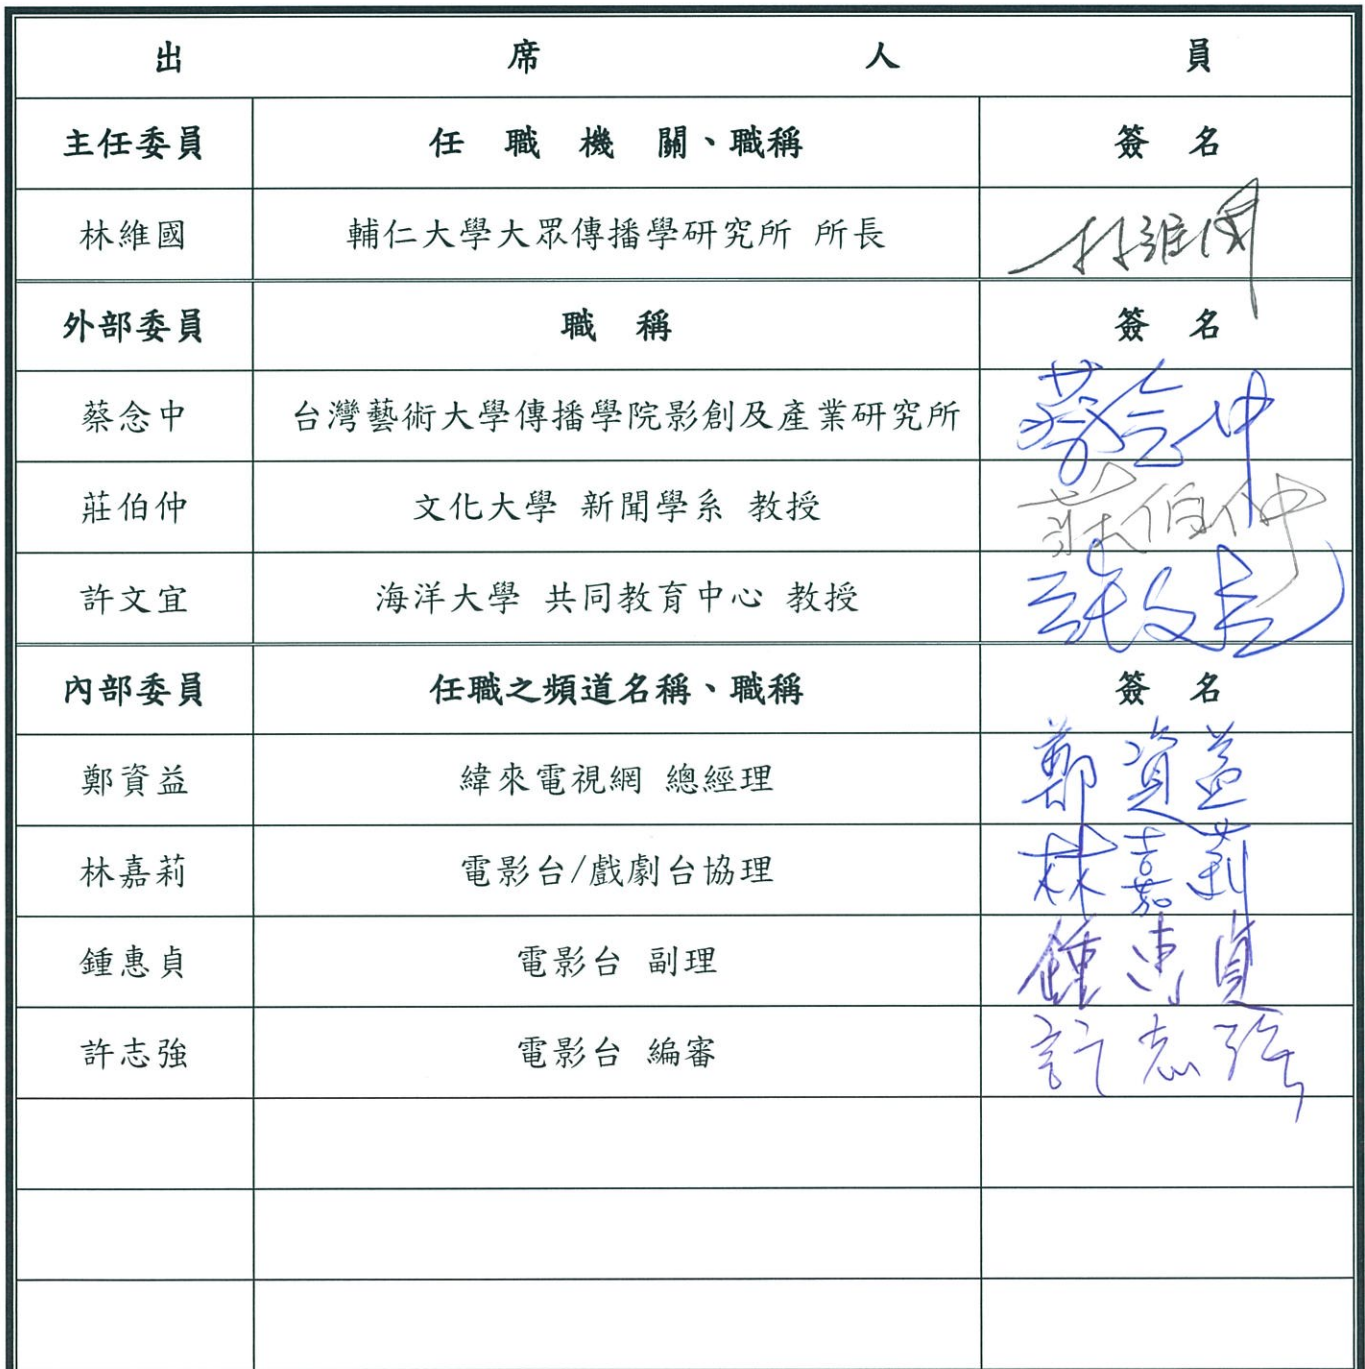 出 席 人 員
主任委員 任 職 機 關、職稱 簽 名
林維國 輔仁大學大眾傳播學研究所 所長 林維國
外部委員 職 稱 簽 名
蔡念中 台灣藝術大學傳播學院影創及產業研究所 蔡念中
莊伯仲 文化大學 新聞學系 教授 莊伯仲
許文宜 海洋大學 共同教育中心 教授 許文宜
內部委員 任職之頻道名稱、職稱 簽 名
鄭資益 緯來電視網 總經理 鄭資益
林嘉莉 電影台/戲劇台協理 林嘉莉
鍾惠貞 電影台 副理 鍾惠貞
許志強 電影台 編審 許志強